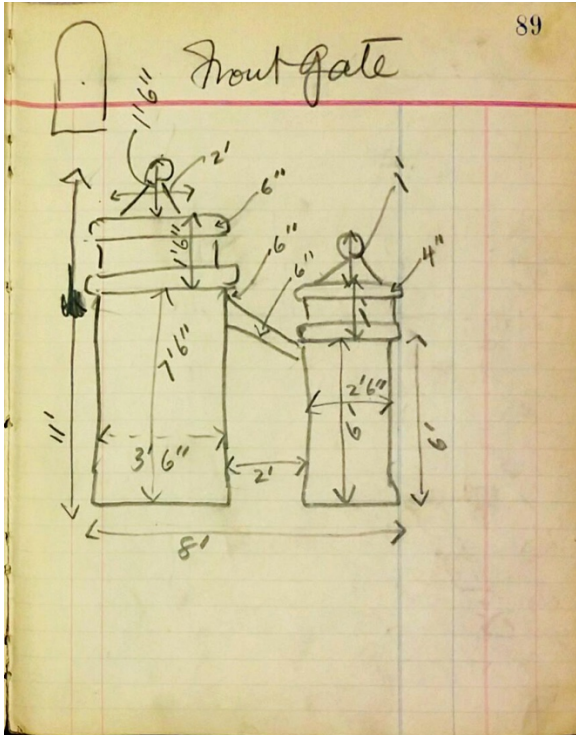 89
Front Gate
1'6"
2'
6"
1'6"
6"
6"
1'
4"
1'
7'6"
2'6"
6'
6'
11'
3' 6"
2'
8'